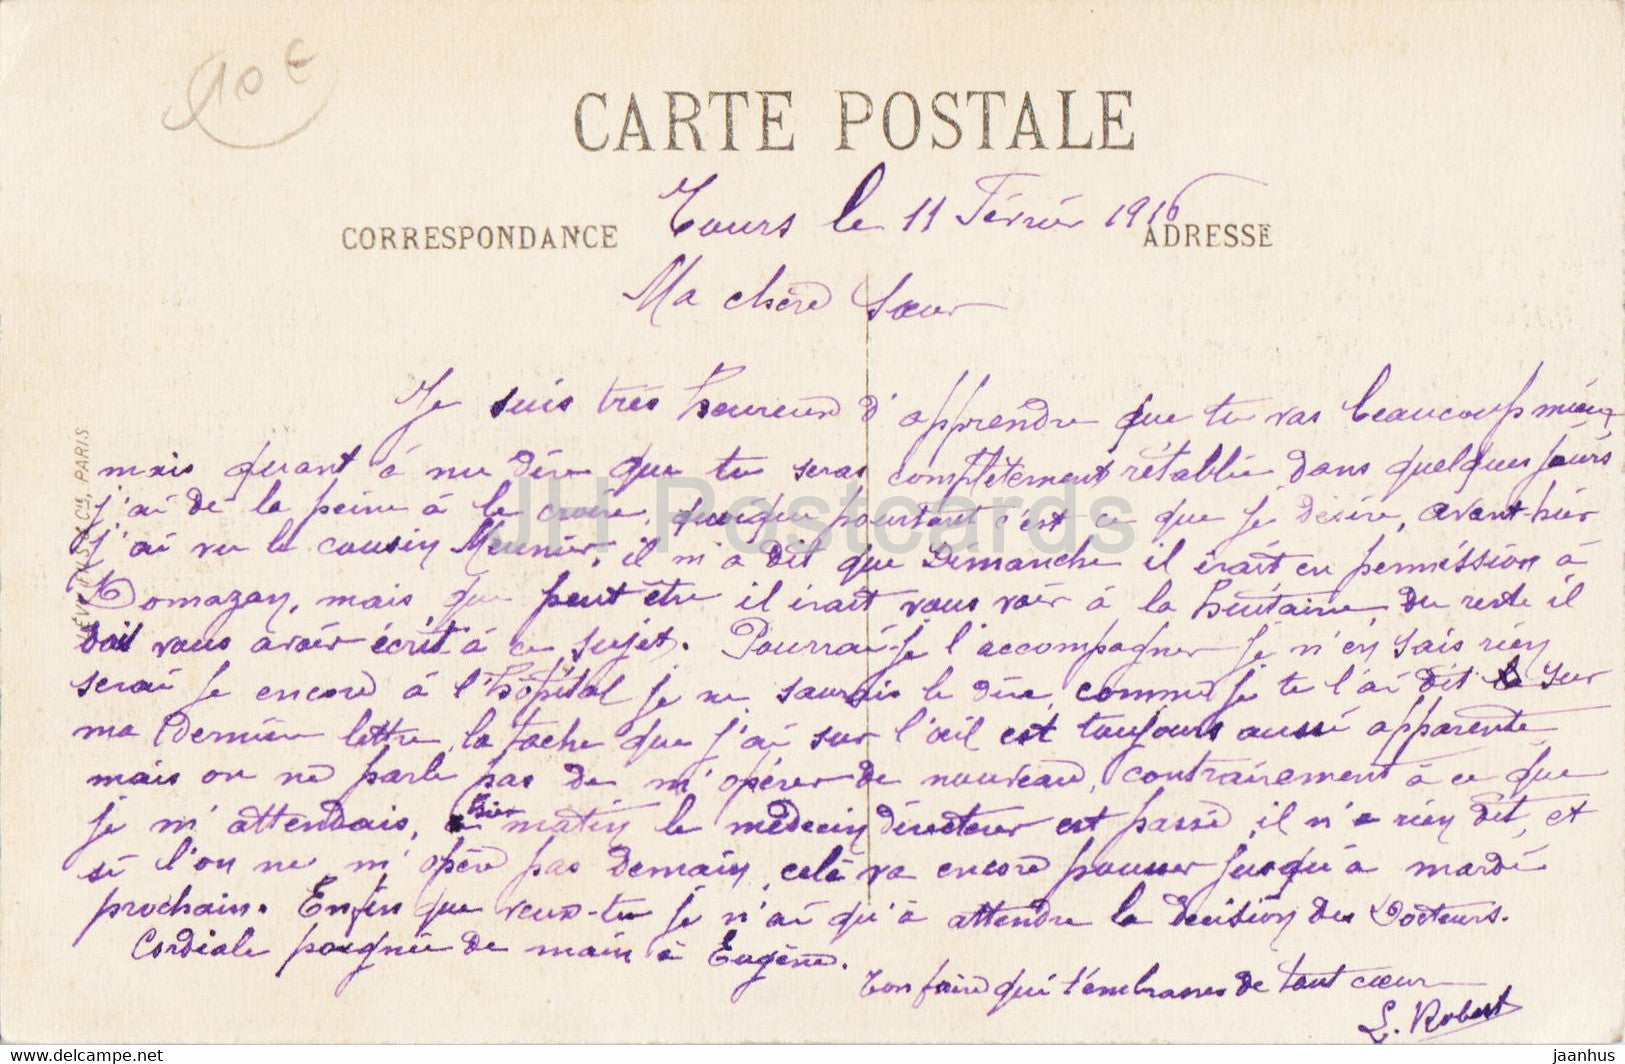 10 €
CARTE POSTALE
CORRESPONDANCE
ADRESSE
Tours le 11 Février 1916
Ma chère Sœur
Je suis très heureux d'apprendre que tu vas beaucoup mieux
mais quant à me dire que tu seras complètement rétablie dans quelques jours
j'ai de la peine à le croire, quoique pourtant c'est ce que je désire, avant-hier
j'ai vu le cousin Meunier, il m'a dit que Dimanche il irait en permission à
Domazan, mais que peut être il irait vous voir à la, du reste il
doit vous avoir écrit à ce sujet. Pourrai-je l'accompagner je n'en sais rien
serai je encore à l'hôpital je ne saurais le dire, comme je te l'ai dit sur
ma dernière lettre, la tache que j'ai sur l'œil est toujours aussi apparente
mais on ne parle pas de m'opérer de nouveau, contrairement à ce que
je m'attendais, hier matin le médecin directeur est passé, il n'a rien dit, et
si l'on ne m'opère pas demain, celà va encore pousser jusqu'à mardi
prochain. Enfin que veux-tu je n'ai qu'à attendre la décision des Docteurs.
Cordiale poignée de main à Eugène.
Ton frère qui t'embrasse de tout cœur
L. Robert
LÉVY FILS & Cie, PARIS
JH Postcards
jaanhus @ delcampe.net